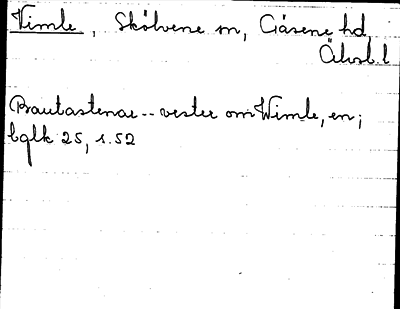 Vimle, Skölvene sn, Gäsene hd,
Älvsb. l
Bautastenar -- vester om Wimle, en;
bglk 25, s. 52